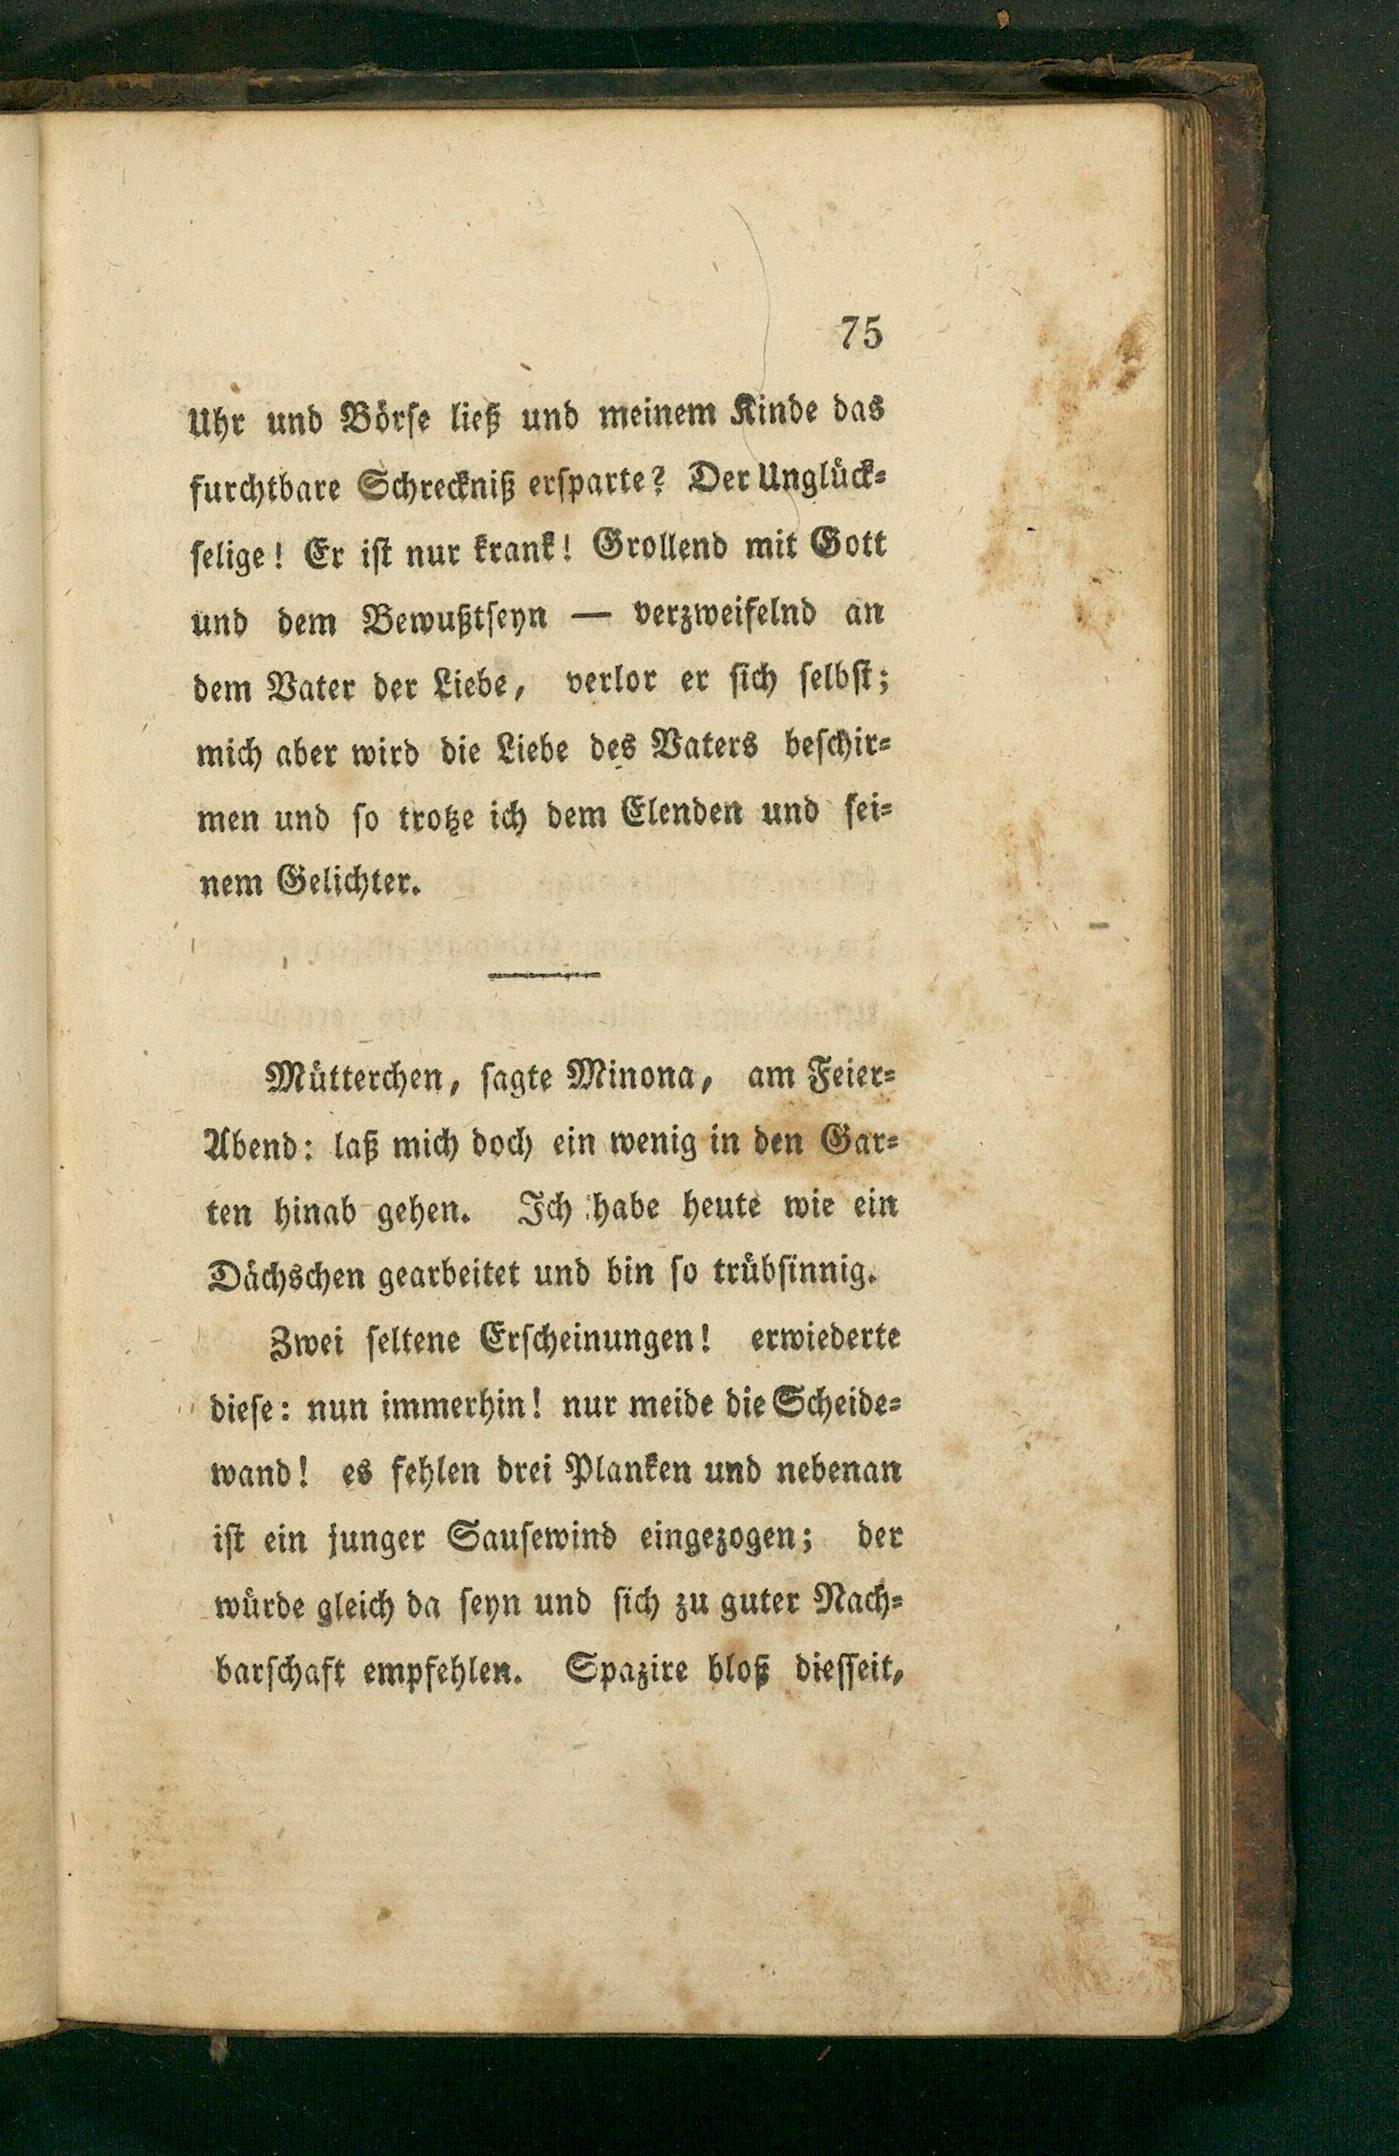 75
Uhr und Börse ließ und meinem Kinde das
furchtbare Schreckniß ersparte? Der Unglück=
selige! Er ist nur krank! Grollend mit Gott
und dem Bewußtseyn — verzweifelnd an
dem Vater der Liebe, verlor er sich selbst;
mich aber wird die Liebe des Vaters beschir=
men und so trotze ich dem Elenden und sei=
nem Gelichter.
Mütterchen, sagte Minona, am Feier=
Abend: laß mich doch ein wenig in den Gar=
ten hinab gehen. Ich habe heute wie ein
Dächschen gearbeitet und bin so trübsinnig.
Zwei seltene Erscheinungen! erwiederte
diese: nun immerhin! nur meide die Scheide=
wand! es fehlen drei Planken und nebenan
ist ein junger Sausewind eingezogen; der
würde gleich da seyn und sich zu guter Nach=
barschaft empfehlen. Spazire bloß diesseit,